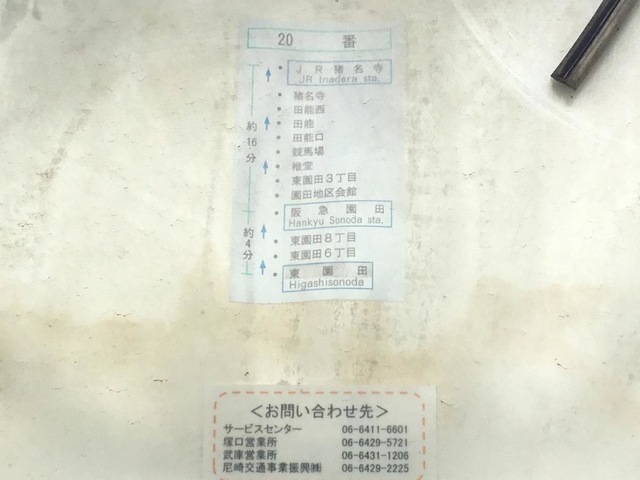 20 番
JR猪名寺
JR Inadera sta.
猪名寺
田能西
田能
田能口
競馬場
椎堂
東園田3丁目
園田地区会館
阪急園田
Hankyu Sonoda sta.
東園田8丁目
東園田6丁目
東園田
Higashisonoda
約16分
約4分
＜お問い合わせ先＞
サービスセンター 06-6411-6601
塚口営業所 06-6429-5721
武庫営業所 06-6431-1206
尼崎交通事業振興㈱ 06-6429-2225